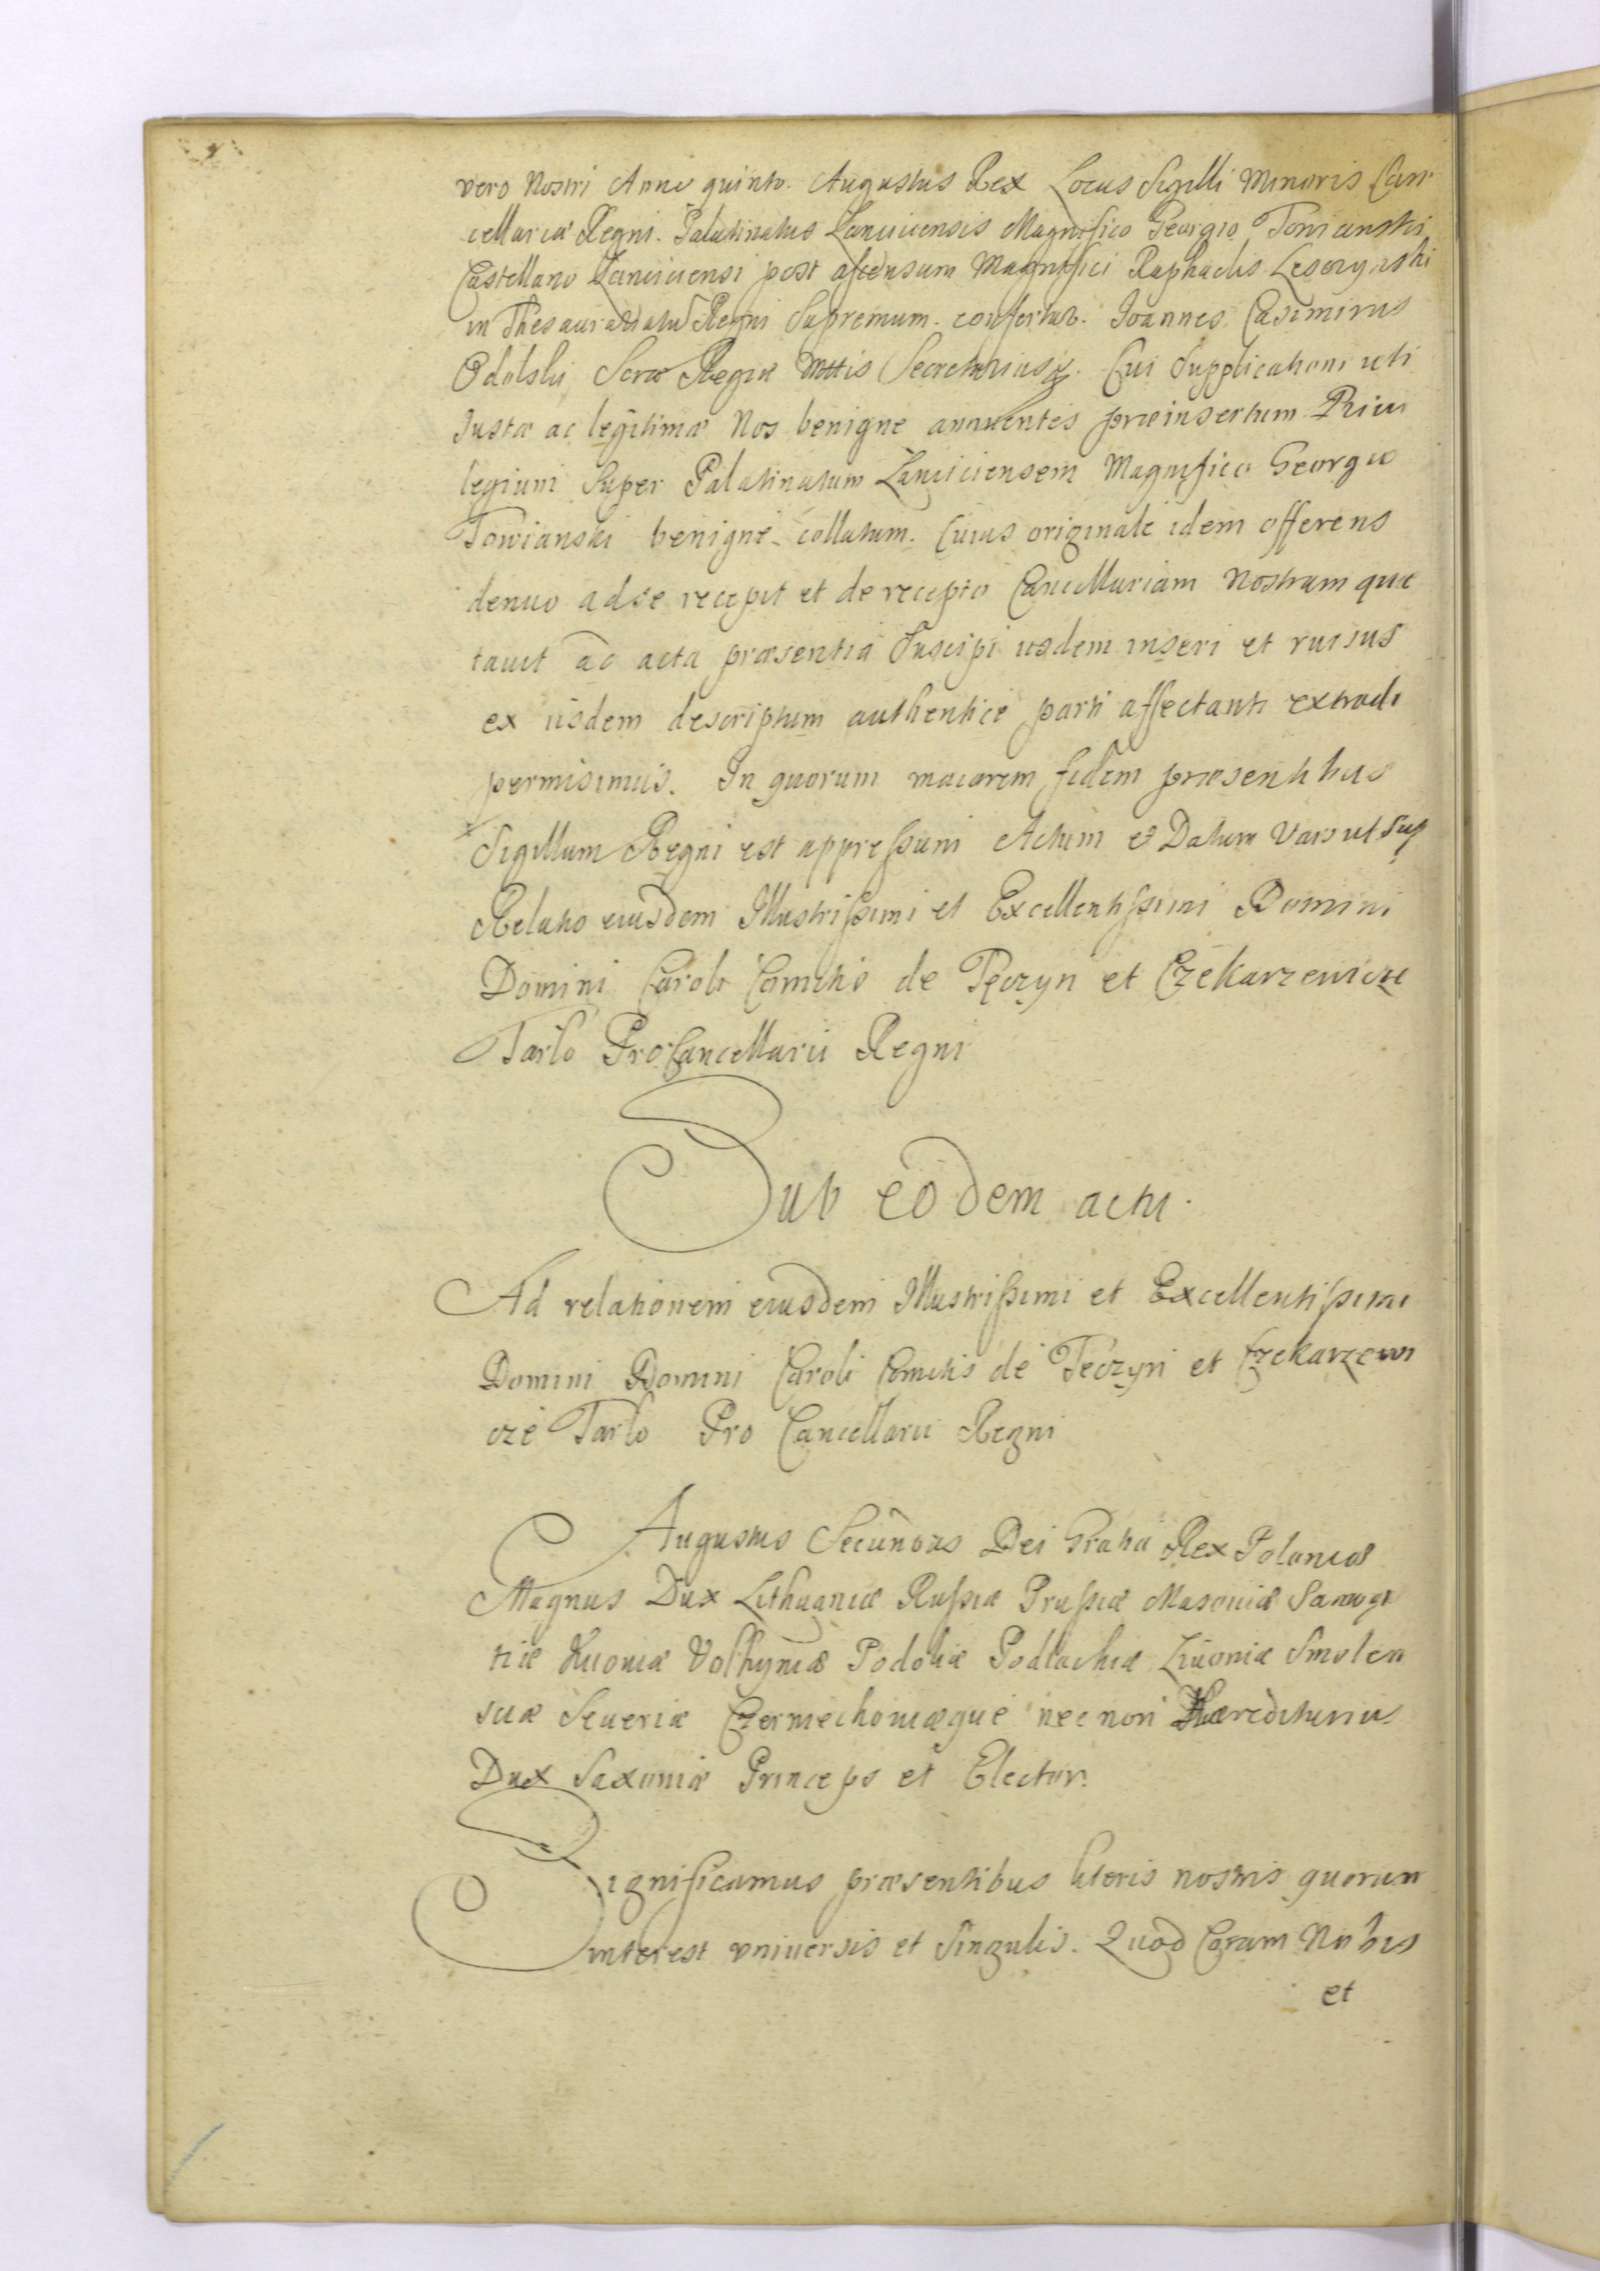 vero Nostri Anno quinto. Augustus Rex Locus Sigilli Minoris Can
cellariæ Regni. Palatinatus Lanciciensis Magnifico Georgio Towianski
Castellano Lanciciensi post ascensum Magnifici Raphaelis Lesczynski
in Thesaurariatū Regni Supremum. confertur. Joannes Casimirus
Odolski Scræ Regiæ Mttis Secretarius. Cui Supplicationi uti
Justæ ac legitimæ Nos benigne annuentes præinsertum Priui
legium Super Palatinatum Lanciciensem Magnifico Georgio
Towianski benigne collatum. Cuius originale idem offerens
denuo ad se recepit et de recepto Cancellariam Nostram quie
tauit ac acta præsentia Suscipi iisdem inseri et rursus
ex iisdem descriptum authentice parti affectanti extradi
permisimus. In quorum maiorem fidem præsentibus
Sigillum Regni est appressum Actum et Datum Vars ut Sup
Relatio eiusdem Illustrissimi et Excellentissimi Domini
Domini Caroli Comitis de Tęczyn et Czekarzewicze
Tarło Pro Cancellarii Regni
Sub eodem actu.
Ad relationem eiusdem Illustrissimi et Excellentissimi
Domini Domini Caroli Comitis de Teczyn et Czekarzewi
cze Tarło Pro Cancellarii Regni
Augustus Secundus Dei Gratia Rex Poloniæ
Magnus Dux Lithuaniæ Russiæ Prussiæ Masouiæ Samogi
tiæ Kiiouiæ Volhyniæ Podoliæ Podlachiæ Liuoniæ Smolen
sciæ Seueriæ Czerniechouiæque nec non Hæreditarius
Dux Saxoniæ Princeps et Elector.
Significamus præsentibus literis nostris quorum
interest vniuersis et Singulis. Quod Coram Nobis
et